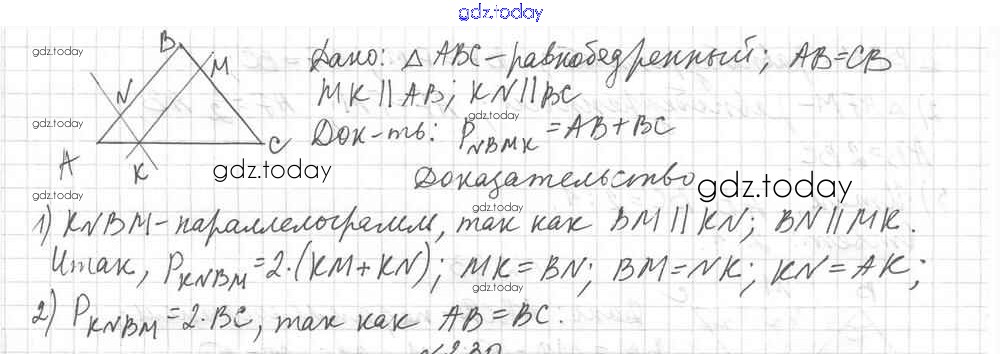 gdz.today
gdz.today B M Дано: △ ABC - равнобедренный; AB=CB
N MK || AB; KN || BC
gdz.today Док-ть: P_NBMK = AB + BC
A K C gdz.today Доказательство gdz.today
gdz.today gdz.today
1) KNBM - параллелограмм, так как BM || KN; BN || MK.
Итак, P_KNBM = 2·(KM + KN); MK = BN; BM = NK; KN = AK;
gdz.today gdz.today
2) P_KNBM = 2·BC, так как AB = BC.